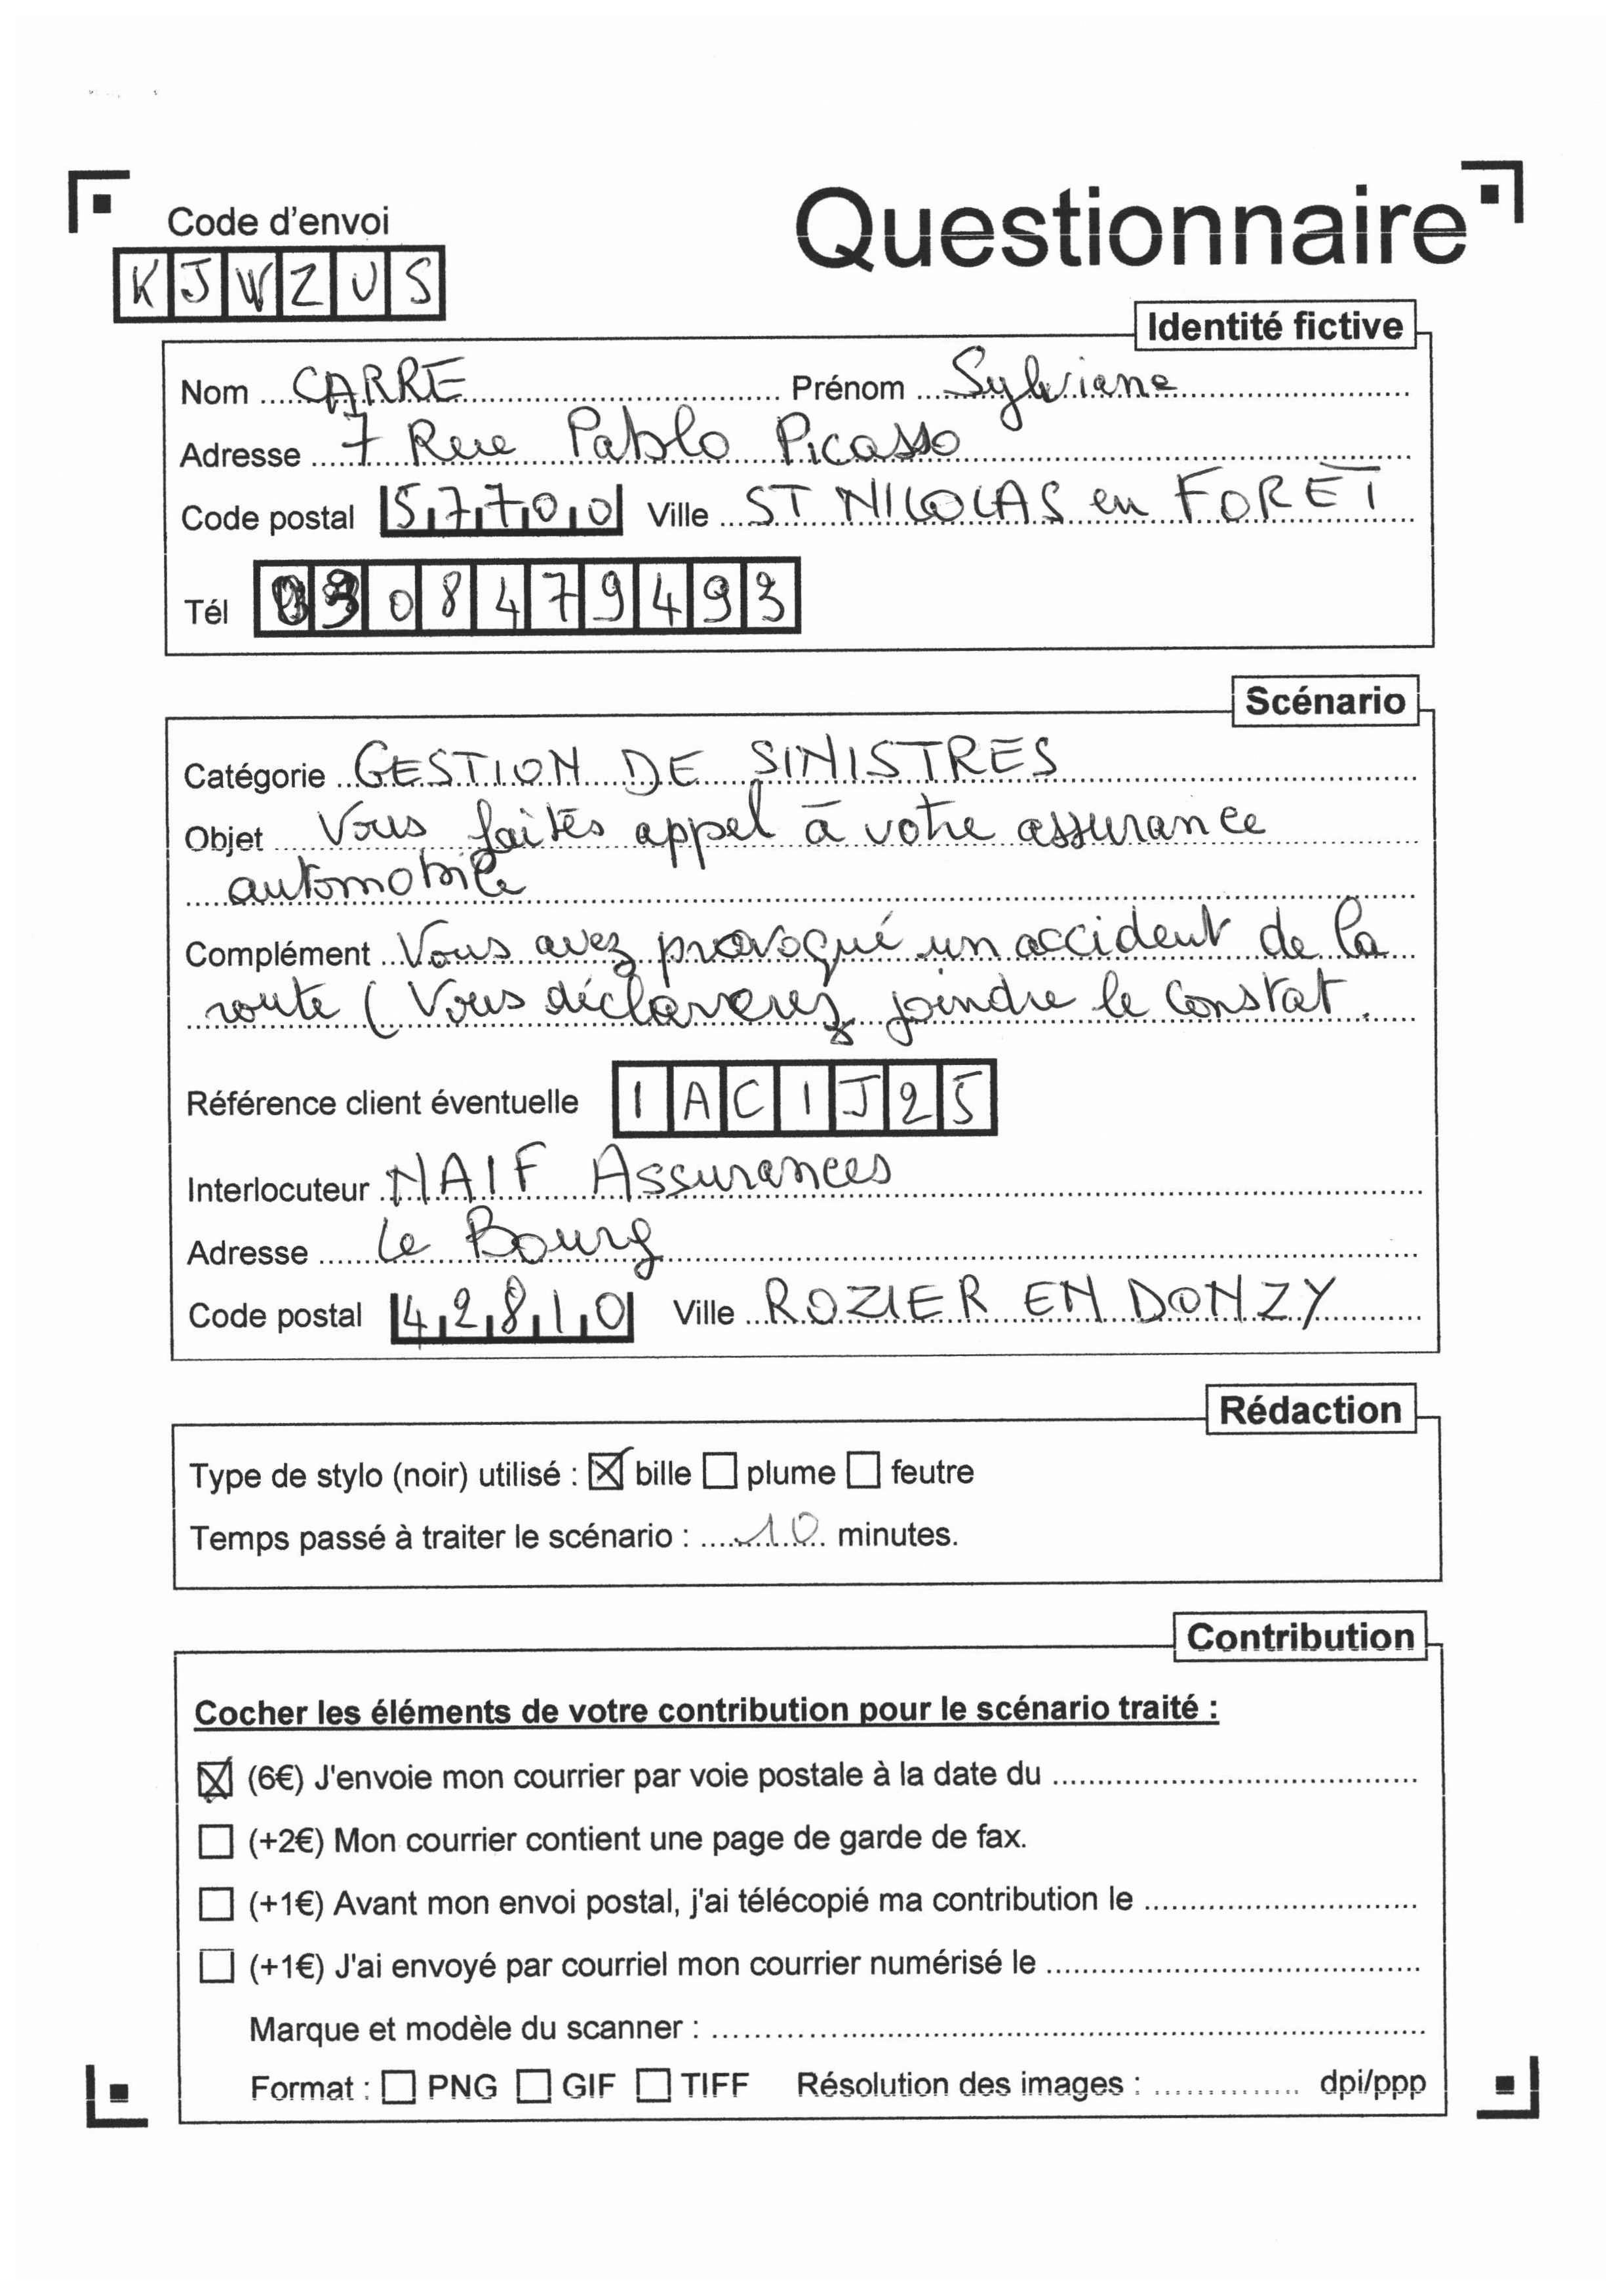 Code d'envoi
Questionnaire
KJWZUS
Identité fictive
Nom CARRE Prénom Sylviane
Adresse 7 Rue Pablo Picasso
Code postal 57700 Ville ST NICOLAS en FORET
Tél 0308479493
Scénario
Catégorie GESTION DE SINISTRES
Objet Vous faites appel à votre assurance
automobile
Complément Vous avez provoqué un accident de la
route (Vous déclarerez joindre le Constat.
Référence client éventuelle 1AC1J25
Interlocuteur NAIF Assurances
Adresse Le Bourg
Code postal 42810 Ville ROZIER EN DONZY
Rédaction
Type de stylo (noir) utilisé : ☒ bille ☐ plume ☐ feutre
Temps passé à traiter le scénario : 10 minutes.
Contribution
Cocher les éléments de votre contribution pour le scénario traité :
☒ (6€) J'envoie mon courrier par voie postale à la date du
☐ (+2€) Mon courrier contient une page de garde de fax.
☐ (+1€) Avant mon envoi postal, j'ai télécopié ma contribution le
☐ (+1€) J'ai envoyé par courriel mon courrier numérisé le
Marque et modèle du scanner :
Format : ☐ PNG ☐ GIF ☐ TIFF Résolution des images : dpi/ppp